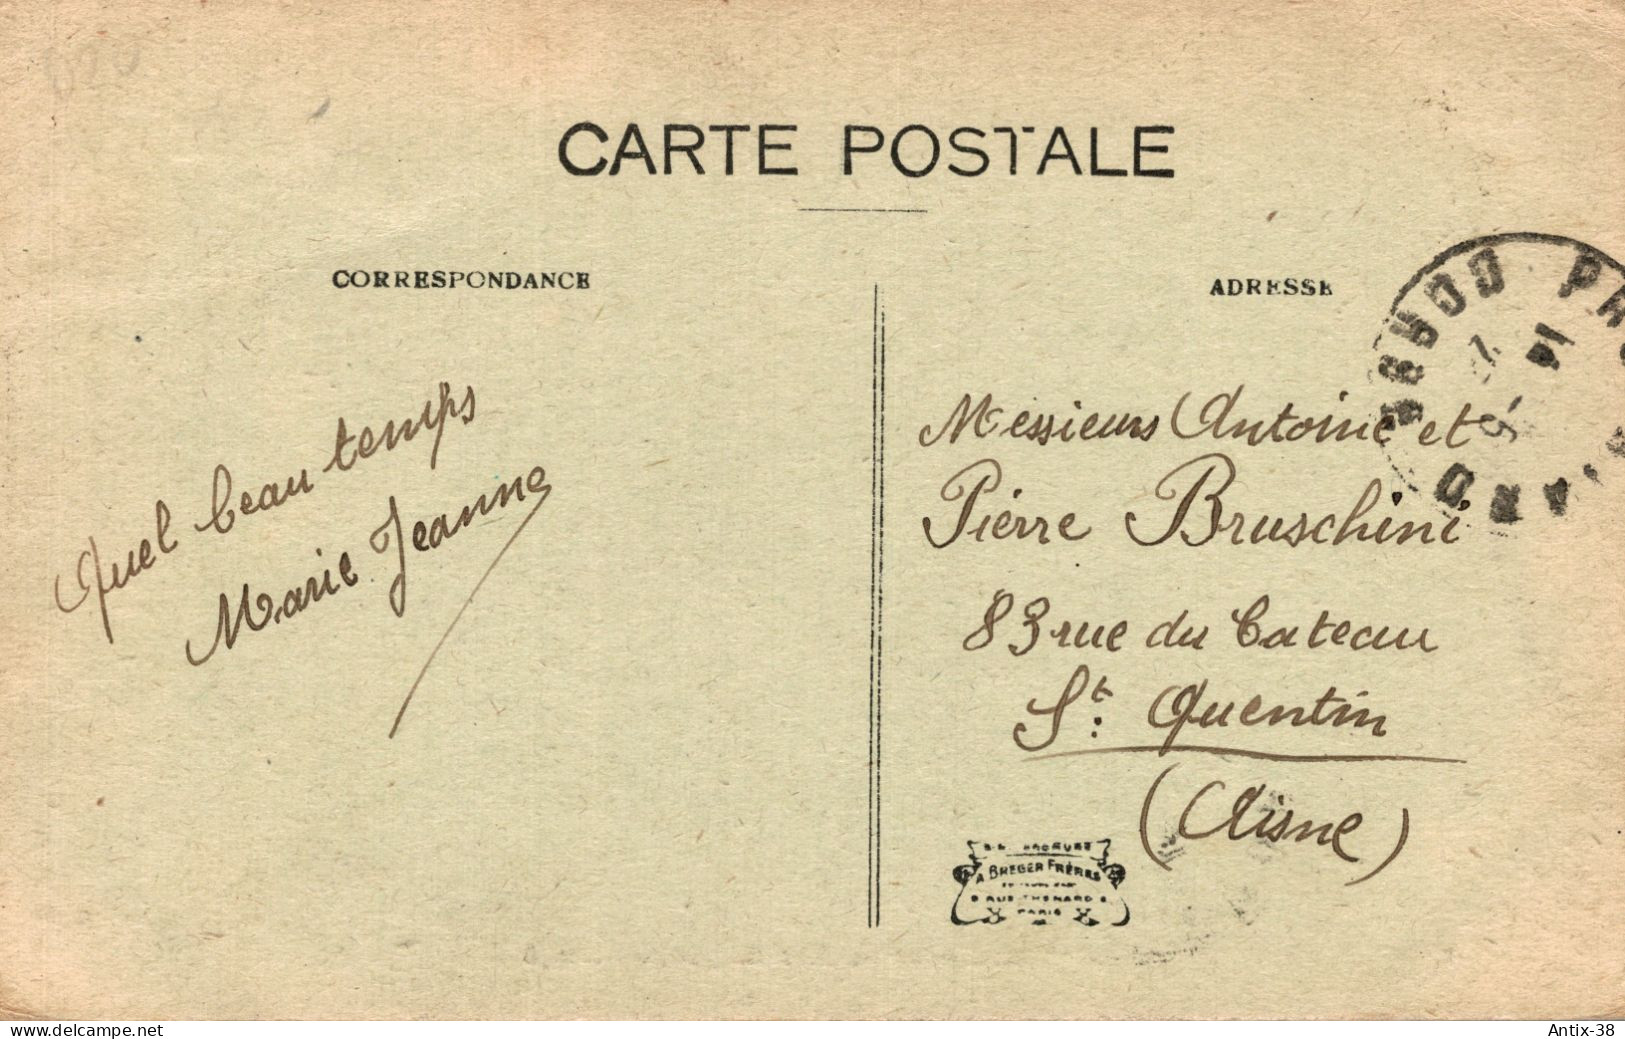 CARTE POSTALE
CORRESPONDANCE
ADRESSE
Quel beau temps
Marie Jeanne
Messieurs Antoine et
Pierre Bruschini
83 rue du Cateau
St. Quentin
(Aisne)
A BREGER FRÈRES
9 RUE THENARD 9
PARIS
www.delcampe.net
Antix-38